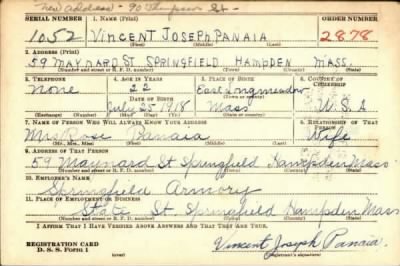 New address - 90 Thompson St.
SERIAL NUMBER 1. NAME (Print) ORDER NUMBER
1052 VINCENT JOSEPH PANAIA 2878
(First) (Middle) (Last)
2. ADDRESS (Print)
59 MAYNARD ST. SPRINGFIELD, HAMPDEN MASS.
(Number and street or R. F. D. number) (Town) (County) (State)
3. TELEPHONE 4. AGE IN YEARS 5. PLACE OF BIRTH 6. COUNTRY OF CITIZENSHIP
None 22 East Longmeadow
DATE OF BIRTH (Town or county)
July 25 1918 Mass U.S.A
(Exchange) (Number) (Mo.) (Day) (Yr.) (State or country)
7. NAME OF PERSON WHO WILL ALWAYS KNOW YOUR ADDRESS 8. RELATIONSHIP OF THAT PERSON
Mrs Rose Panaia Wife
(Mr., Mrs., Miss) (First) (Middle) (Last)
9. ADDRESS OF THAT PERSON
59 Maynard St Springfield Hampden Mass
(Number and street or R. F. D. number) (Town) (County) (State)
10. EMPLOYER'S NAME
Springfield Armory
11. PLACE OF EMPLOYMENT OR BUSINESS
State St. Springfield Hampden Mass
(Number and street or R. F. D. number) (Town) (County) (State)
I AFFIRM THAT I HAVE VERIFIED ABOVE ANSWERS AND THAT THEY ARE TRUE.
REGISTRATION CARD
D. S. S. Form 1 (over) Vincent Joseph Panaia
(Registrant's signature)